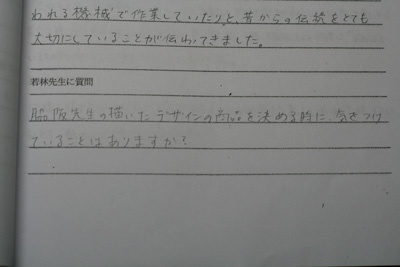 われる機械で作業していたりと、昔からの伝統をとても
大切にしていることが伝わってきました。
若林先生に質問
脇阪先生の描いたデザインの商品を決める時に、気をつけ
ていることはありますか？